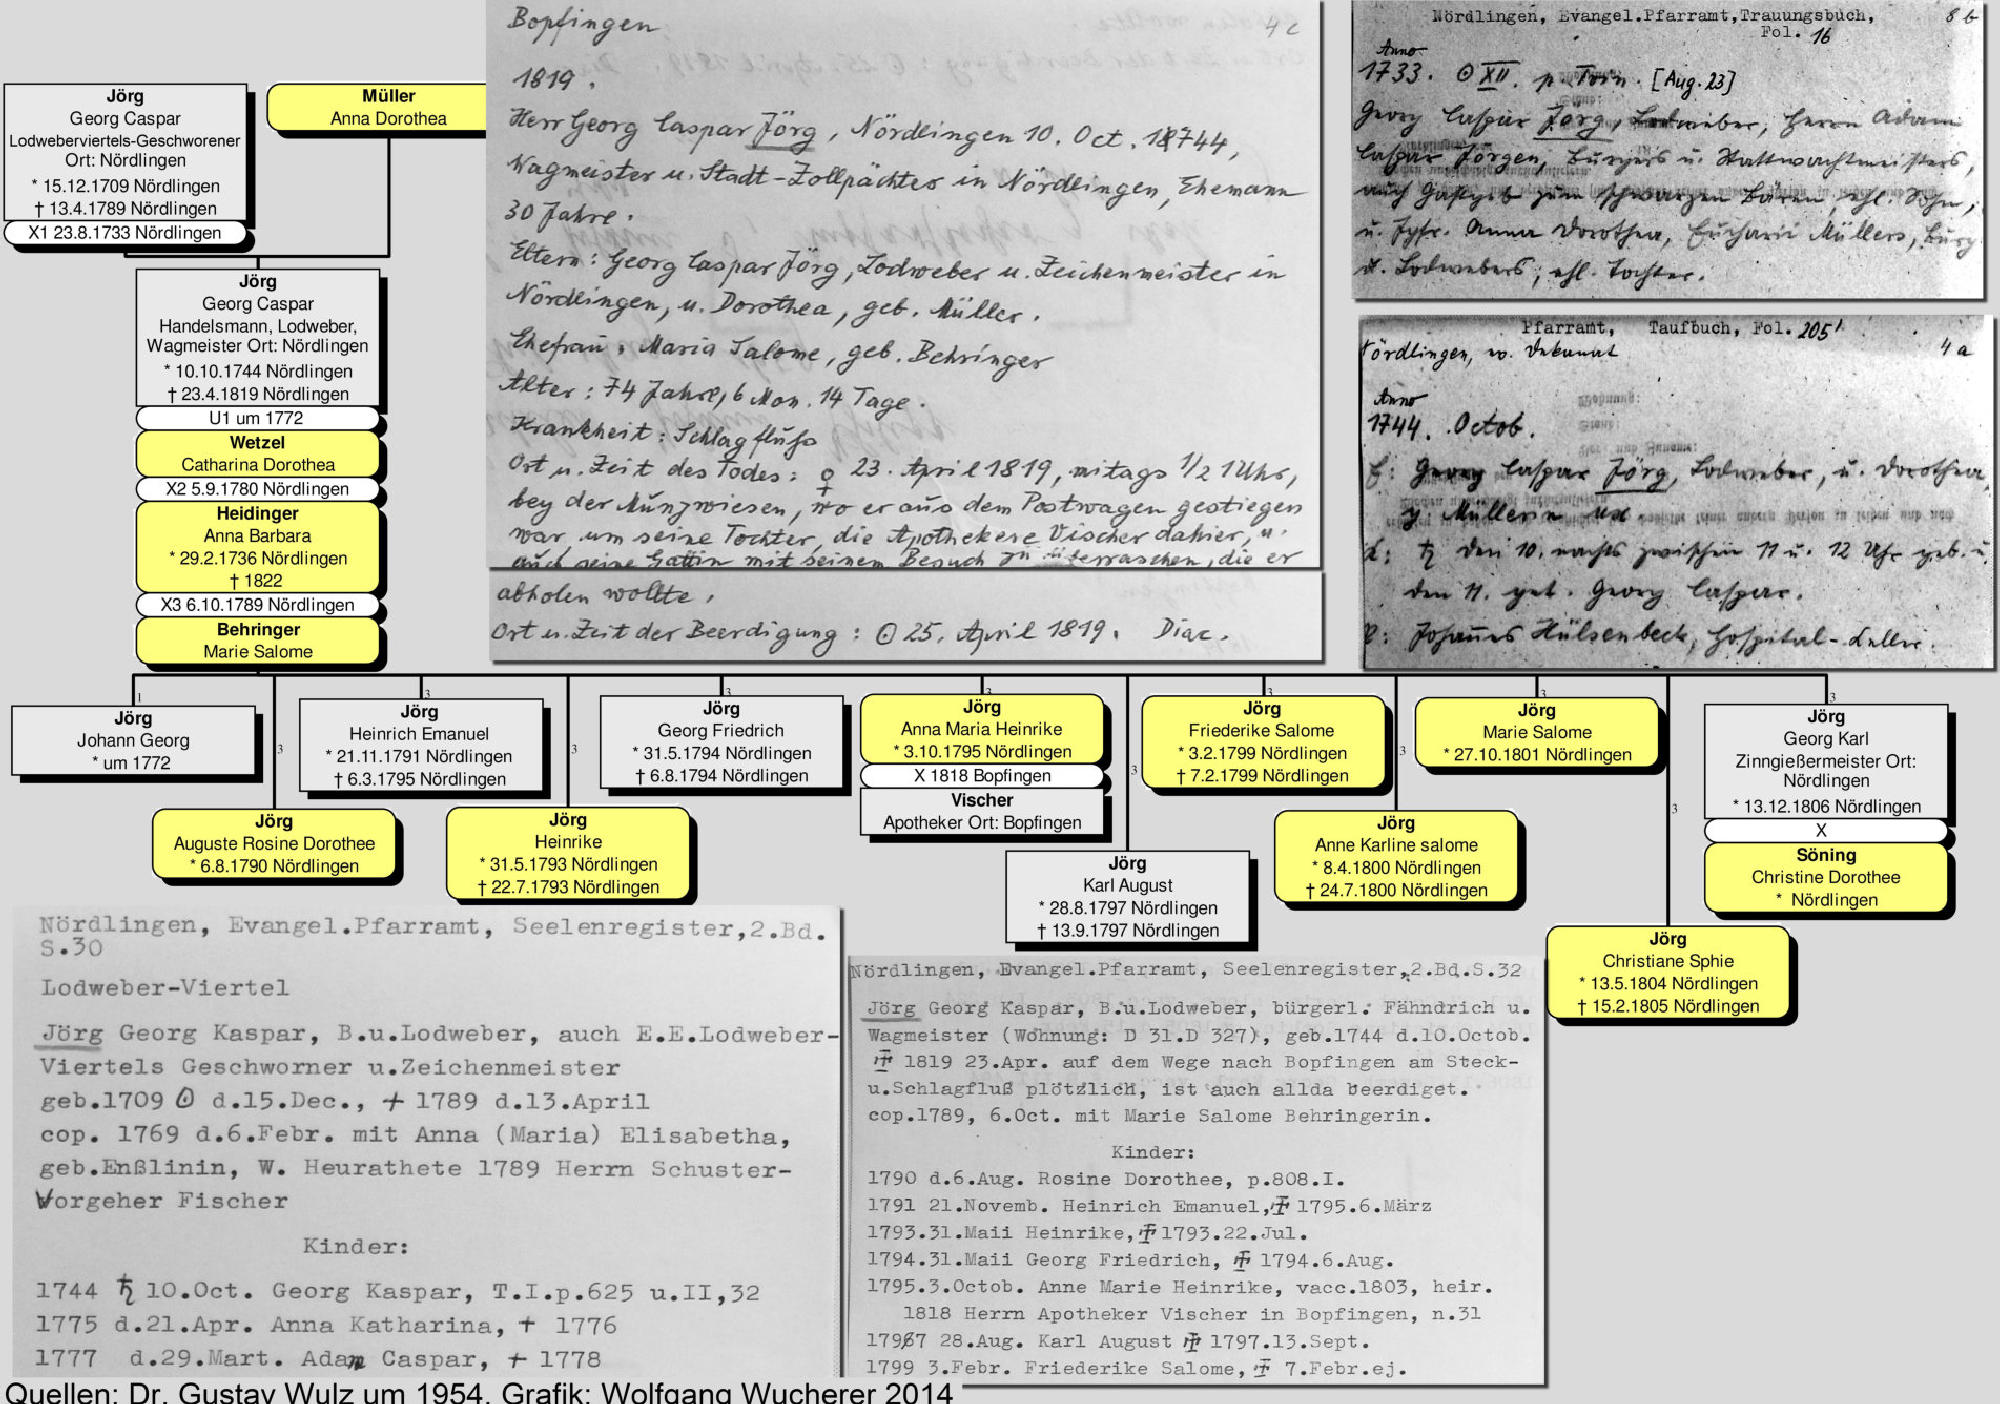 Jörg
Georg Caspar
Lodweberviertels-Geschworener
Ort: Nördlingen
* 15.12.1709 Nördlingen
† 13.4.1789 Nördlingen
X1 23.8.1733 Nördlingen
Müller
Anna Dorothea
Jörg
Georg Caspar
Handelsmann, Lodweber,
Wagmeister Ort: Nördlingen
* 10.10.1744 Nördlingen
† 23.4.1819 Nördlingen
U1 um 1772
Wetzel
Catharina Dorothea
X2 5.9.1780 Nördlingen
Heidinger
Anna Barbara
* 29.2.1736 Nördlingen
† 1822
X3 6.10.1789 Nördlingen
Behringer
Marie Salome
Bopfingen 4c
1819.
Herr Georg Caspar Jörg, Nördlingen 10. Oct. 18744,
Wagmeister u. Stadt-Zollpächter in Nördlingen, Ehemann
30 Jahre.
Eltern: Georg Caspar Jörg, Lodweber u. Zeichenmeister in
Nördlingen, u. Dorothea, geb. Müller.
Ehefrau: Maria Salome, geb. Behringer
Alter: 74 Jahre, 6 Mon. 14 Tage.
Krankheit: Schlagfluß
Ort u. Zeit des Todes: ♀ 23. April 1819, mitags 1/2 1 Uhr,
bey der Münzwiesen, wo er aus dem Postwagen gestiegen
war um seine Tochter, die Apothekere Vischer dahier, u.
auch seine Gattin mit seinem Besuch zu überraschen, die er
abholen wollte.
Ort u. Zeit der Beerdigung: ☉ 25. April 1819. Diac.
Nördlingen, Evangel.Pfarramt,Trauungsbuch, 8b
Fol. 16
Anno
1733. ☉ XII. p. Trin. [Aug. 23]
Georg Caspar Jörg, Lodweber, Herrn Adam
Caspar Jörgen, Burgers u. Stattwachtmeisters,
auch Gastgeb zum schwarzen Bären, ehl. Sohn,
u. Jgfr. Anna Dorothea, Eucharii Müllers, Burg
u. Lodwebers, ehl. Tochter.
Pfarramt, Taufbuch, Fol. 205'
Nördlingen, ev. Dekanat 4a
Anno
1744. Octob.
Georg Caspar Jörg, Lodweber, u. Dorothea,
Müllerin ux
♄ den 10. nachts zwischen 11 u. 12 Uhr geb. u.
den 11. get. Georg Caspar.
Johannes Hülsenbeck, Hospital-
1
Jörg
Johann Georg
* um 1772
3
Jörg
Auguste Rosine Dorothee
* 6.8.1790 Nördlingen
3
Jörg
Heinrich Emanuel
* 21.11.1791 Nördlingen
† 6.3.1795 Nördlingen
3
Jörg
Heinrike
* 31.5.1793 Nördlingen
† 22.7.1793 Nördlingen
3
Jörg
Georg Friedrich
* 31.5.1794 Nördlingen
† 6.8.1794 Nördlingen
3
Jörg
Anna Maria Heinrike
* 3.10.1795 Nördlingen
X 1818 Bopfingen
Vischer
Apotheker Ort: Bopfingen
3
Jörg
Karl August
* 28.8.1797 Nördlingen
† 13.9.1797 Nördlingen
3
Jörg
Friederike Salome
* 3.2.1799 Nördlingen
† 7.2.1799 Nördlingen
3
Jörg
Anne Karline salome
* 8.4.1800 Nördlingen
† 24.7.1800 Nördlingen
3
Jörg
Marie Salome
* 27.10.1801 Nördlingen
3
Jörg
Christiane Sphie
* 13.5.1804 Nördlingen
† 15.2.1805 Nördlingen
3
Jörg
Georg Karl
Zinngießermeister Ort:
Nördlingen
* 13.12.1806 Nördlingen
X
Söning
Christine Dorothee
* Nördlingen
Nördlingen, Evangel.Pfarramt, Seelenregister,2.Bd.
S.30
Lodweber-Viertel
Jörg Georg Kaspar, B.u.Lodweber, auch E.E.Lodweber-
Viertels Geschworner u.Zeichenmeister
geb.1709 ☉ d.15.Dec., + 1789 d.13.April
cop. 1769 d.6.Febr. mit Anna (Maria) Elisabetha,
geb.Enßlinin, W. Heurathete 1789 Herrn Schuster-
Vorgeher Fischer
Kinder:
1744 ♄ 10.Oct. Georg Kaspar, T.I.p.625 u.II,32
1775 d.21.Apr. Anna Katharina, + 1776
1777 d.29.Mart. Adam Caspar, + 1778
Nördlingen, Evangel.Pfarramt, Seelenregister,2.Bd.S.32
Jörg Georg Kaspar, B.u.Lodweber, bürgerl. Fähndrich u.
Wagmeister (Wohnung: D 31.D 327), geb.1744 d.10.Octob.
+ 1819 23.Apr. auf dem Wege nach Bopfingen am Steck-
u.Schlagfluß plötzlich, ist auch allda beerdiget.
cop.1789, 6.Oct. mit Marie Salome Behringerin.
Kinder:
1790 d.6.Aug. Rosine Dorothee, p.808.I.
1791 21.Novemb. Heinrich Emanuel,+ 1795.6.März
1793.31.Maii Heinrike,+ 1793.22.Jul.
1794.31.Maii Georg Friedrich, + 1794.6.Aug.
1795.3.Octob. Anne Marie Heinrike, vacc.1803, heir.
1818 Herrn Apotheker Vischer in Bopfingen, n.31
17967 28.Aug. Karl August + 1797.13.Sept.
1799 3.Febr. Friederike Salome,+ 7.Febr.ej.
Quellen: Dr. Gustav Wulz um 1954, Grafik: Wolfgang Wucherer 2014